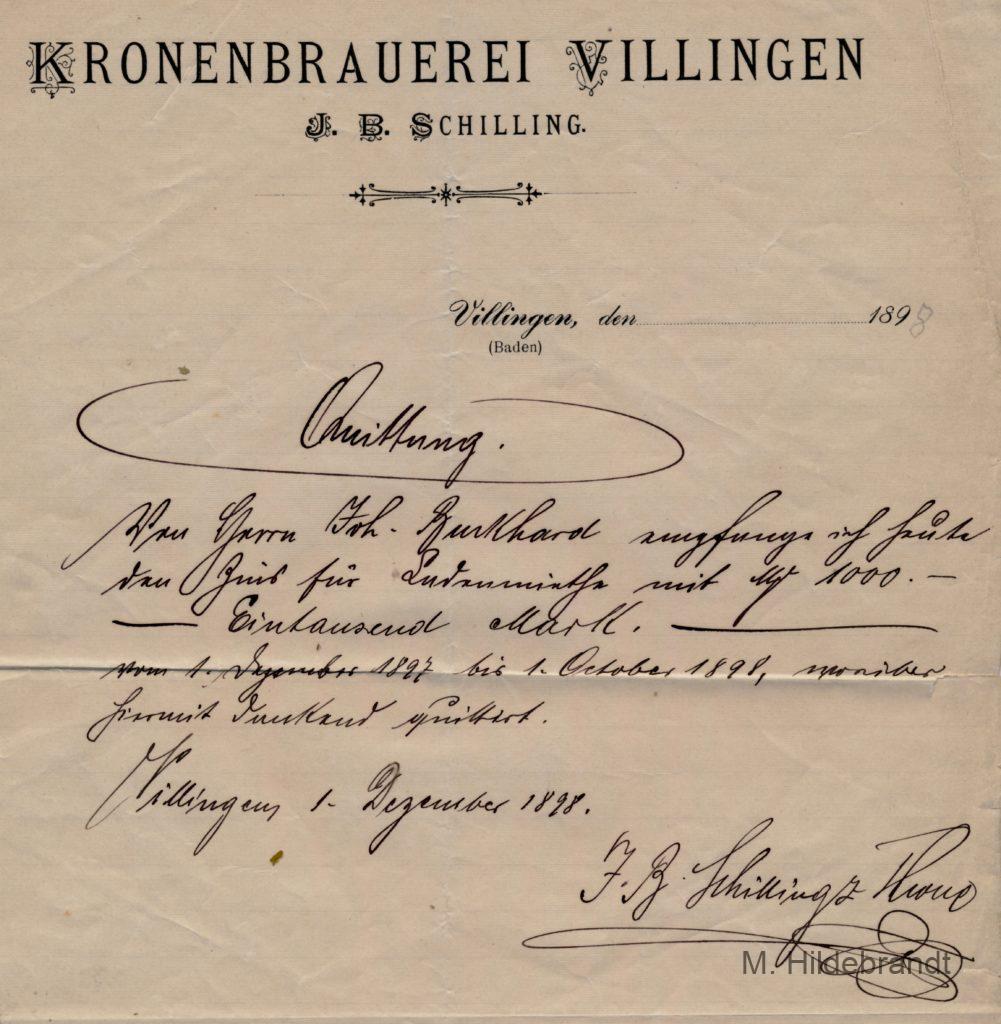 KRONENBRAUEREI VILLINGEN
J. B. SCHILLING.
Villingen, den 1898
(Baden)
Quittung.
Von Herrn Joh. Burkhard empfange ich heute
den Zins für Ladenmiethe mit M 1000.—
— Eintausend Mark. —
vom 1. Dezember 1897 bis 1. October 1898, worüber
hiermit dankend quittirt.
Villingen, 1. Dezember 1898.
J. B. Schilling z Krone
M. Hildebrandt